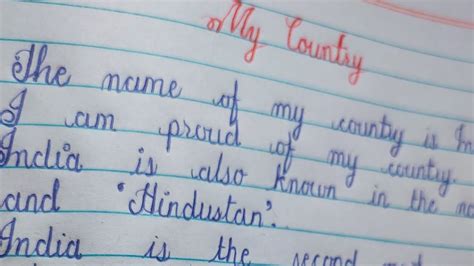 My Country
The name of my country is In
I am proud of my country
India is also known in the
and 'Hindustan'.
India is the second